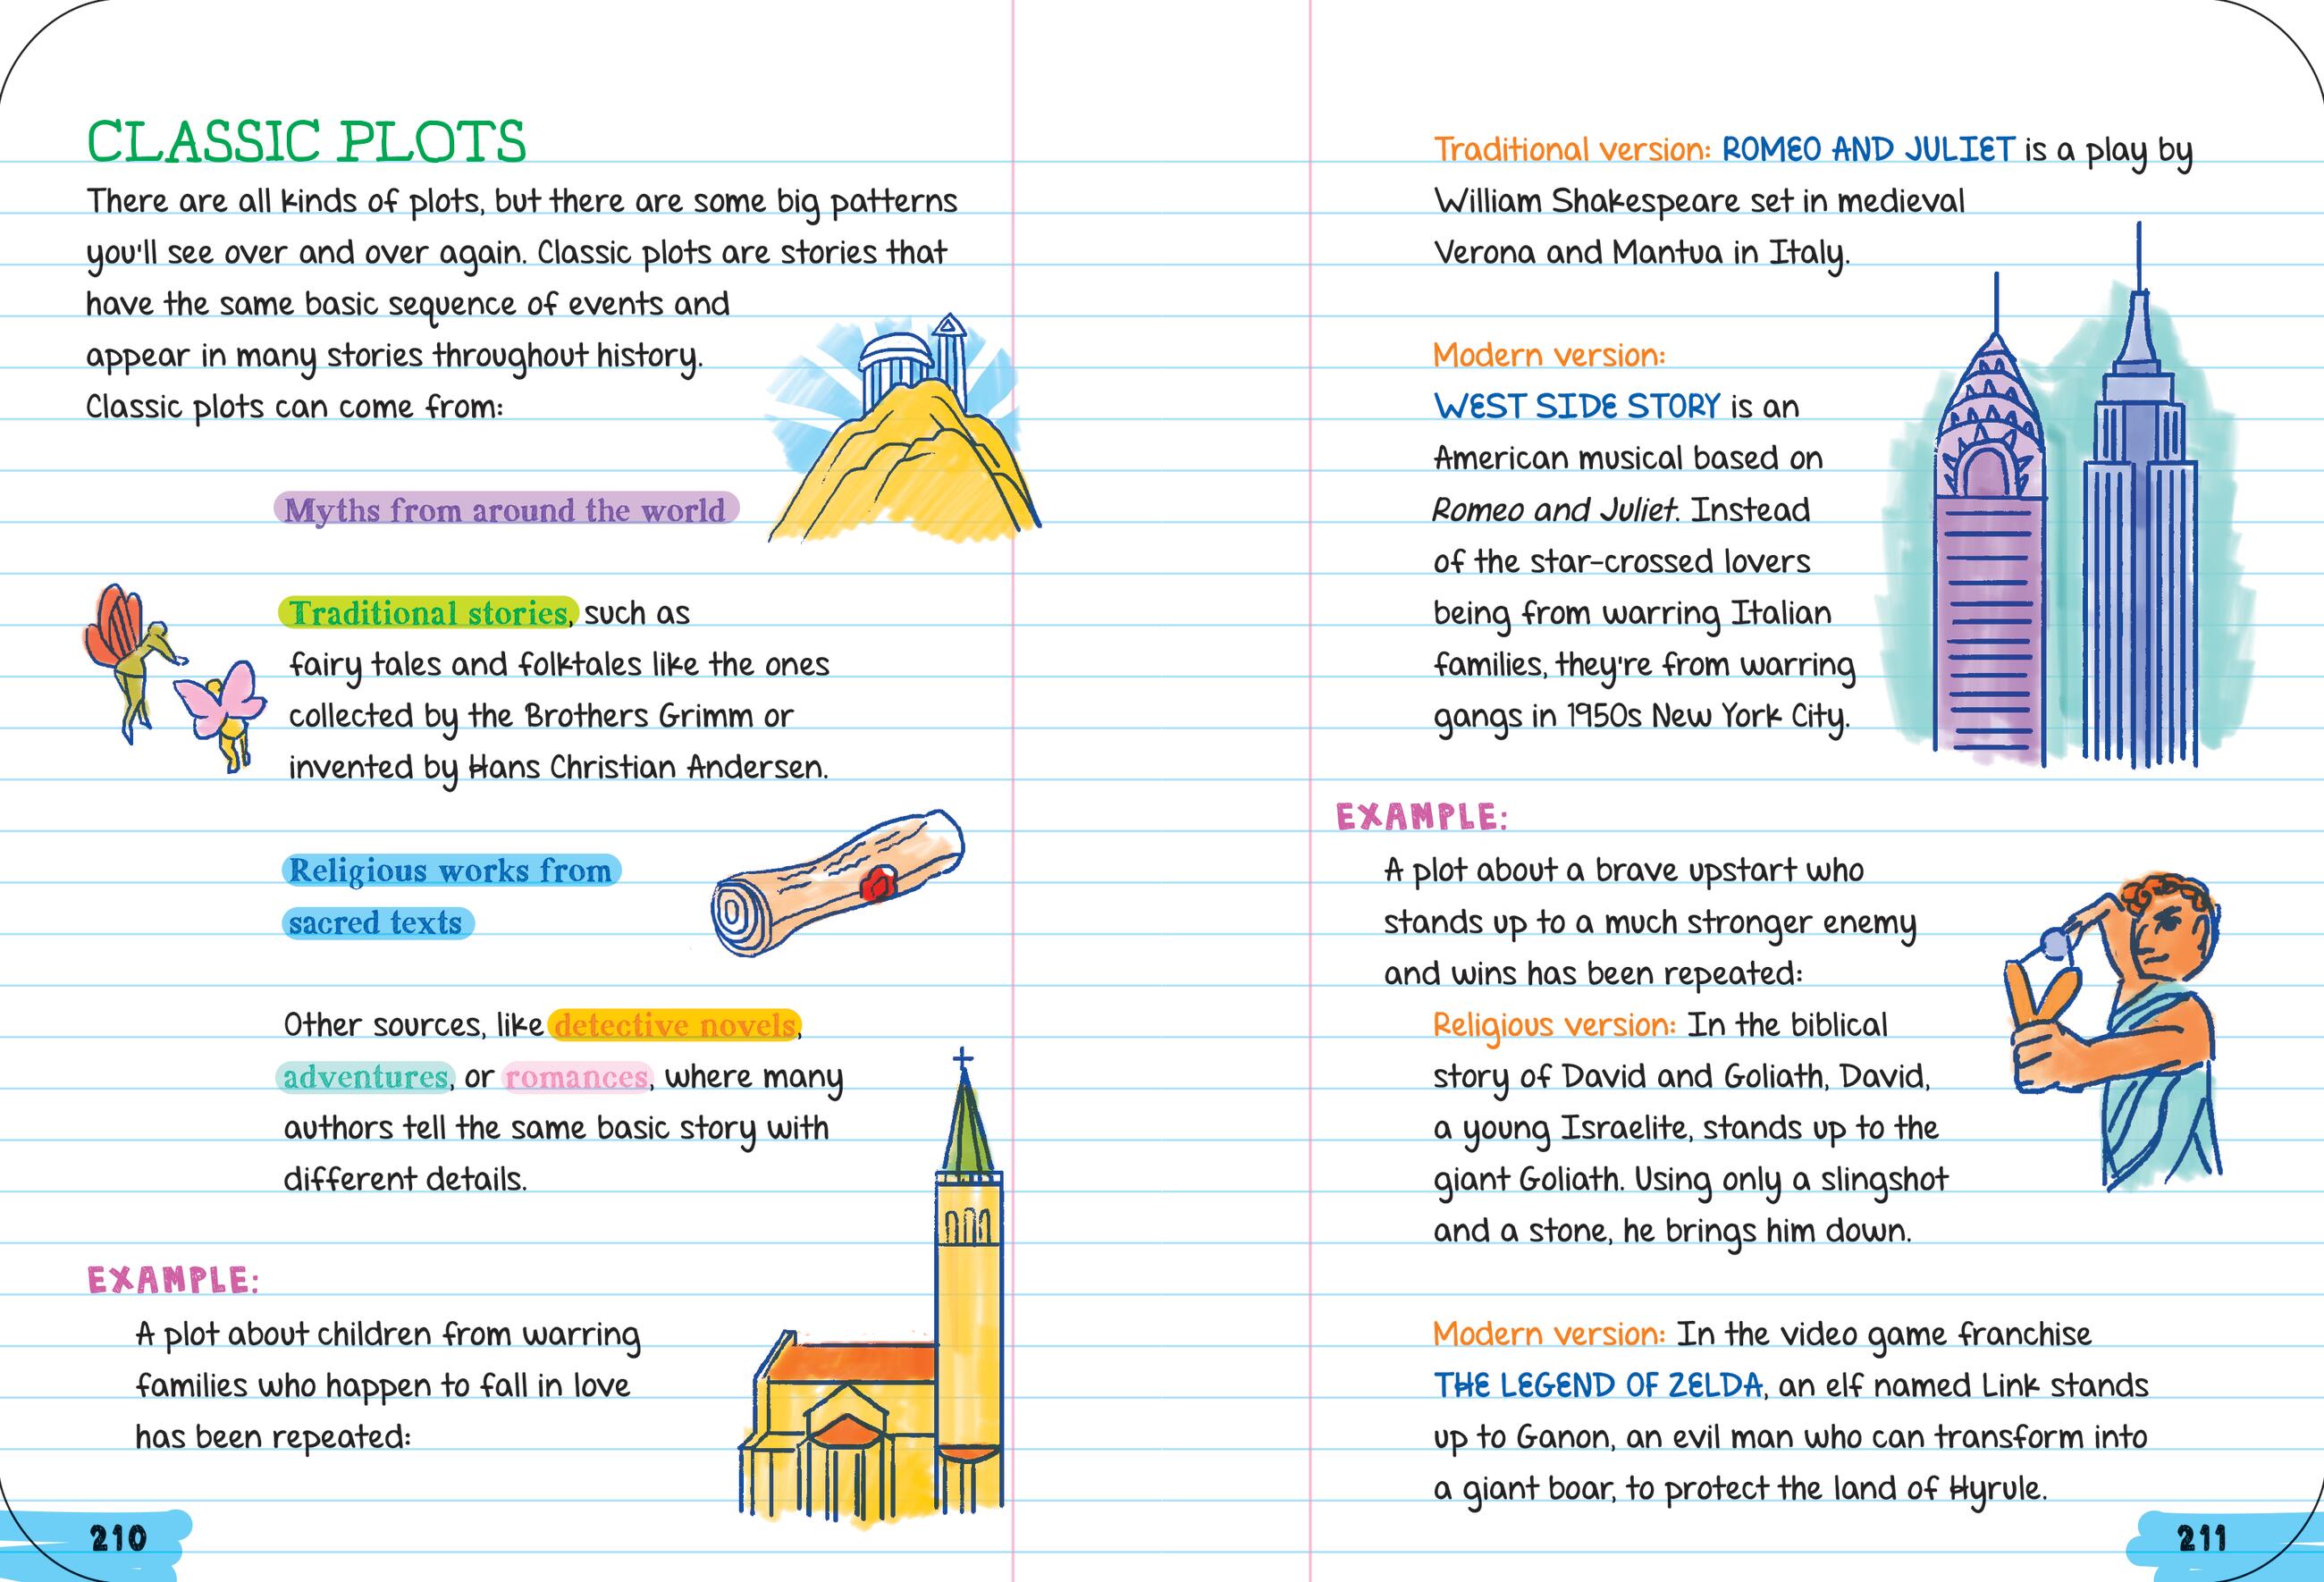 CLASSIC PLOTS
There are all kinds of plots, but there are some big patterns
you'll see over and over again. Classic plots are stories that
have the same basic sequence of events and
appear in many stories throughout history.
Classic plots can come from:
Myths from around the world
Traditional stories, such as
fairy tales and folktales like the ones
collected by the Brothers Grimm or
invented by Hans Christian Andersen.
Religious works from
sacred texts
Other sources, like detective novels,
adventures, or romances, where many
authors tell the same basic story with
different details.
EXAMPLE:
A plot about children from warring
families who happen to fall in love
has been repeated:
210
Traditional version: ROMEO AND JULIET is a play by
William Shakespeare set in medieval
Verona and Mantua in Italy.
Modern version:
WEST SIDE STORY is an
American musical based on
Romeo and Juliet. Instead
of the star-crossed lovers
being from warring Italian
families, they're from warring
gangs in 1950s New York City.
EXAMPLE:
A plot about a brave upstart who
stands up to a much stronger enemy
and wins has been repeated:
Religious version: In the biblical
story of David and Goliath, David,
a young Israelite, stands up to the
giant Goliath. Using only a slingshot
and a stone, he brings him down.
Modern version: In the video game franchise
THE LEGEND OF ZELDA, an elf named Link stands
up to Ganon, an evil man who can transform into
a giant boar, to protect the land of Hyrule.
211